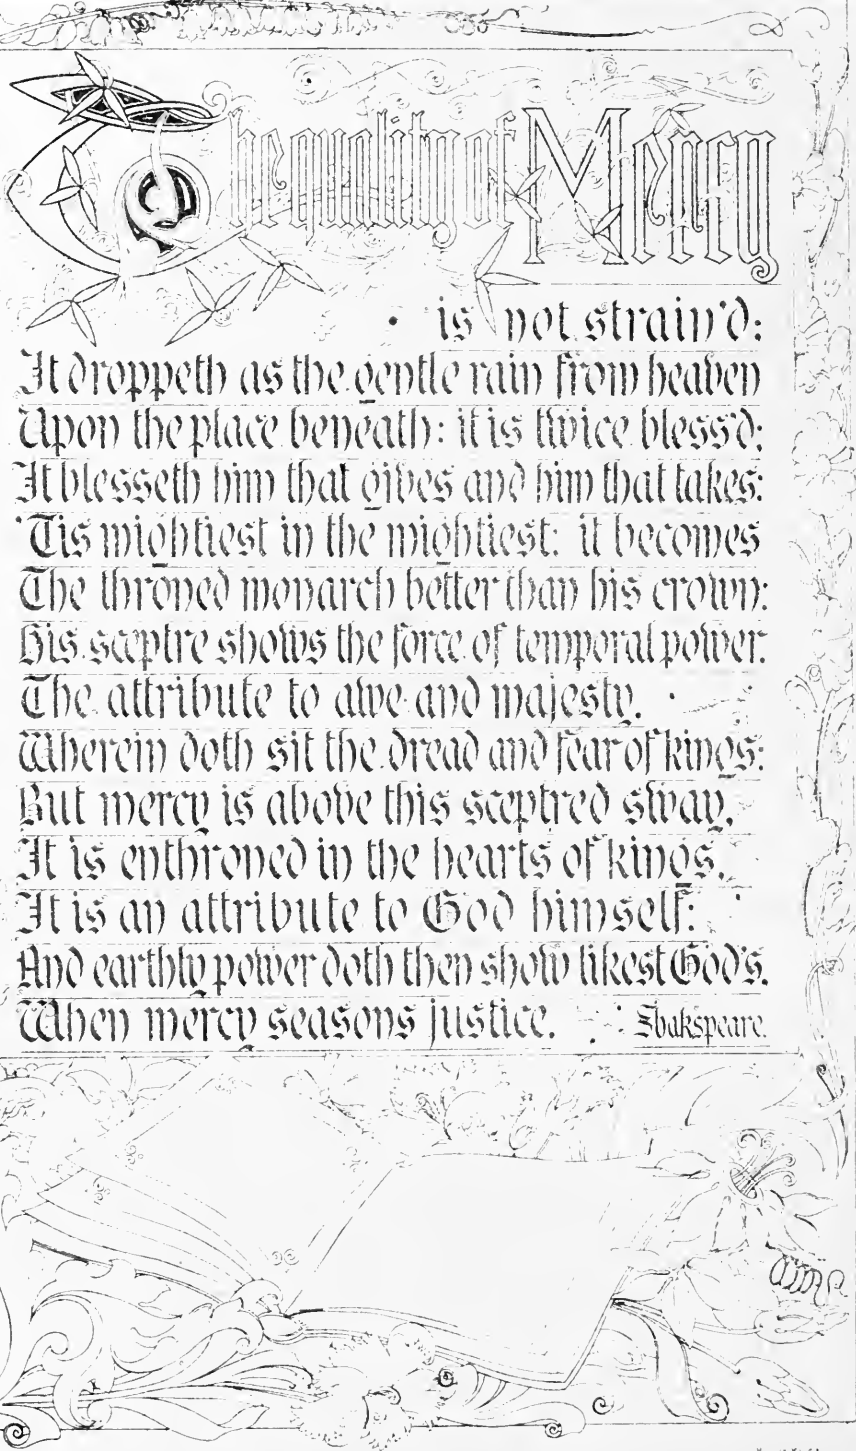 The quality of Mercy
is not strain'd:
It droppeth as the gentle rain from heaven
Upon the place beneath: it is twice bless'd;
It blesseth him that gives and him that takes:
'Tis mightiest in the mightiest: it becomes
The throned monarch better than his crown:
His sceptre shows the force of temporal power.
The attribute to awe and majesty.
Wherein doth sit the dread and fear of kings:
But mercy is above this sceptred sway,
It is enthroned in the hearts of kings.
It is an attribute to God himself:
And earthly power doth then show likest God's.
When mercy seasons justice.
Shakspeare.